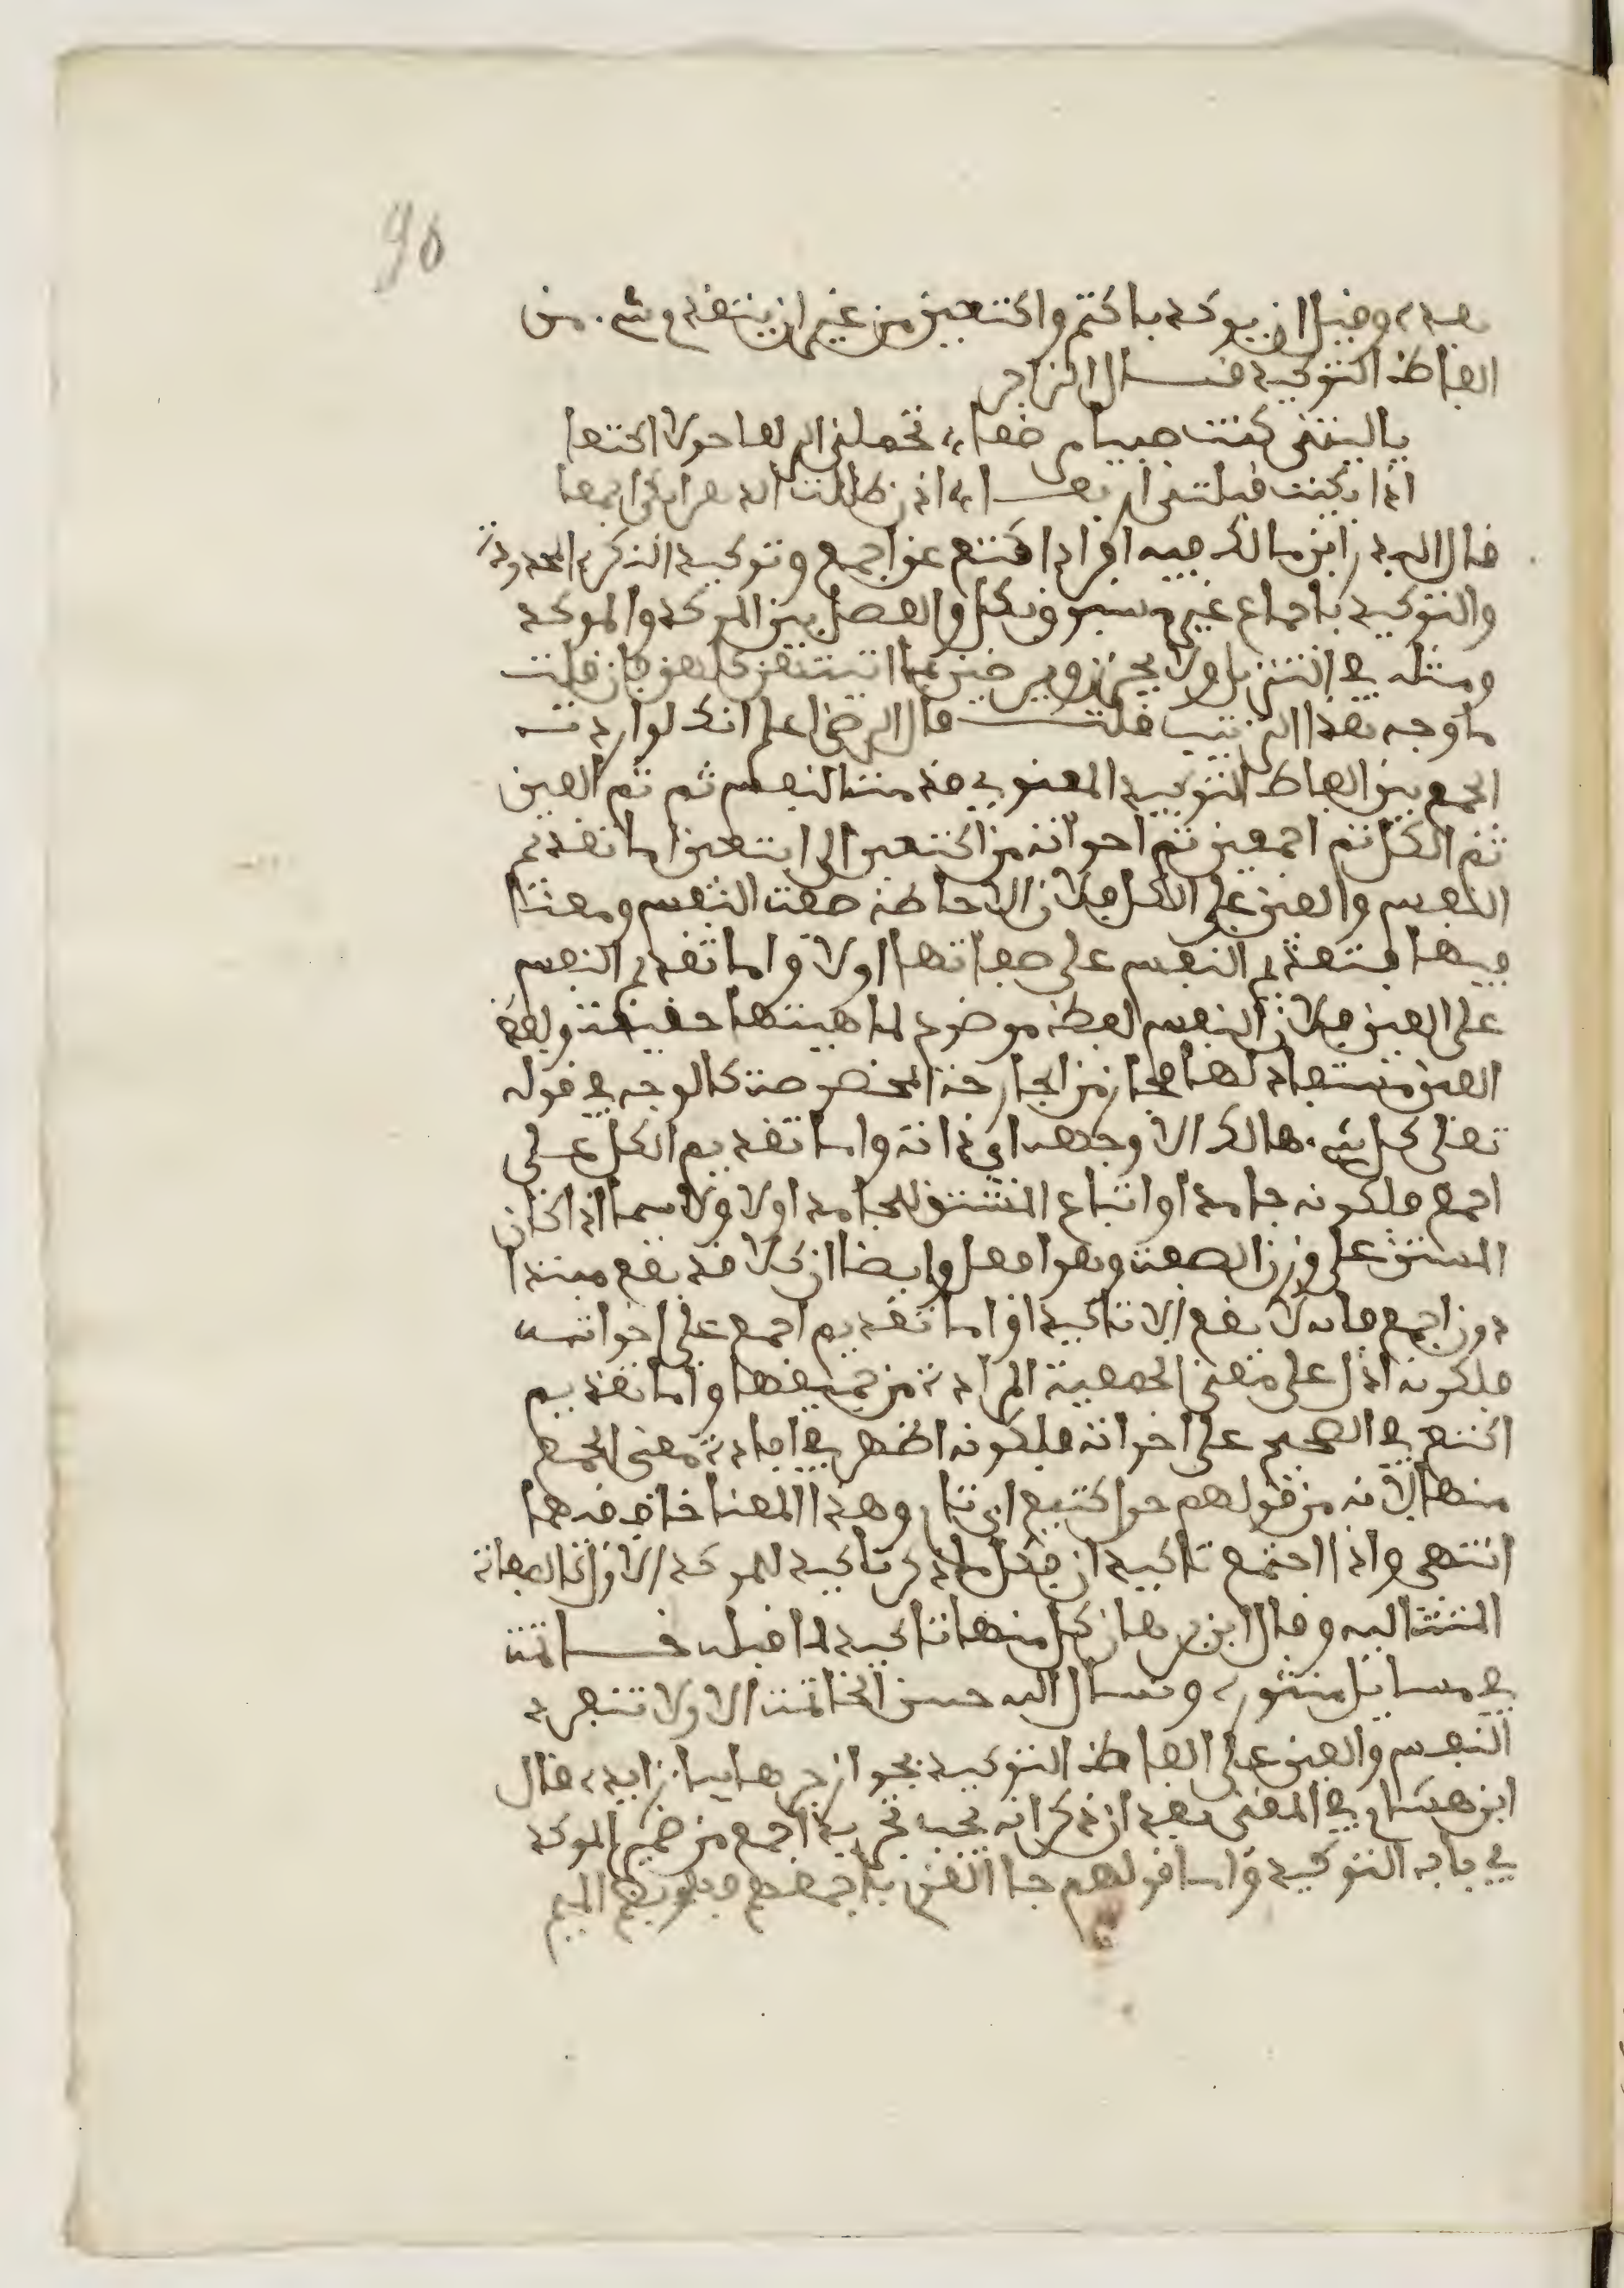 90
بعده، وقيل ان يوكد باكتع واكتعين من غير ان يتقدم شيء من
الفاظ التوكيد قــال الراجز
يا ليتني كنت صبيا مرضعا، تحملني الذلفا حولا اكتعا
اذا بكيت قبلتني اربعــا، اذن ظللت الدهر ابكي اجمعا
قال البدر ابن مالك فيه افراد اكتع عن اجمع وتوكيد النكرة المحدودة
والتوكيد باجماع غير مسبوق بكل والفصل بين الموكد والموكد
ومثله في التنزيل ولا يحزن ويرضين بما اتيتهن كلهن فان قلت
ما وجه هذا الترتيب قلــت قال الرضي اعلم انك لو اردت
الجمع بين الفاظ التوكيد المعنوي قدمت النفس ثم ثم العين
ثم الكل ثم اجمعين ثم اخواته من اكتعين الى ابتعين اما تقديم
النفس والعين على الكل فلان الاحاطة صفت النفس ومعنا
فيها فتقدم النفس على صفاتها اولا واما تقديم النفس
على العين فلان النفس لفظ موضوع لماهيتها حقيقت ولفظ
العين مستعار لها مجاز من الجارحة المخصوصة كالوجه في قوله
تعلى كل شيء هالك الا وجهه اي ذاته واما تقديم الكل على
اجمع فلكونه جامدا واتباع المشتق للجامد اولا ولا سيما اذا كان
المشتق على وزن الصفت وهو افعل وايضا ان كلا قد يقع مبتدا
دون اجمع فانه لا يقع الا تاكيدا واما تقديم اجمع على اخواته
فلكونه ادل على معنى الجمعية المرادة من جميعها واما تقديم
اكتع في الصحيح على اخواته فلكونه اظهر في افادة معنى الجمع
منها لانه من قولهم حول كتيع اي تام وهذا المعنا خاف فيهما
انتهى واذا اجتمع تاكيدان فكل ما ذكر تاكيد للموكد الاول كالصفات
المتتاليه وقال ابن برهان كل منها تاكيد لما قبله خــاتمت
في مسايل منثورة، ونسال الله حسن الخاتمت الاولا تنفرد
النفس والعين على الفاظ التوكيد بجواز جرهما بباء زايدة، قال
ابن هشام في المغني بعد ان ذكر انه يجب تجريد اجمع من ضمير الموكد
في باب التوكيد واما قولهم جا القوم باجمعهم فهو بضم الميم